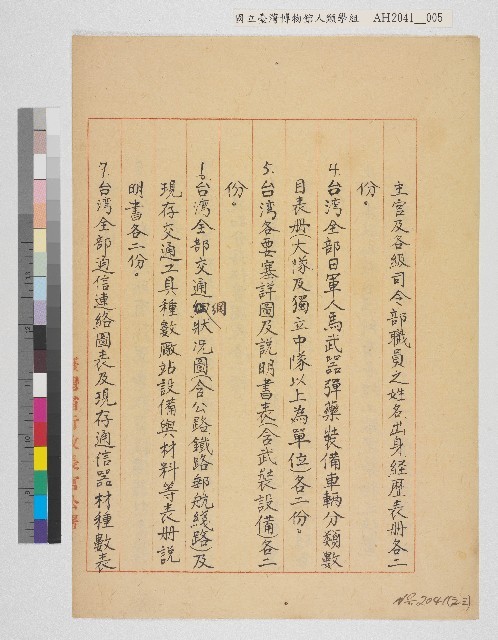 國立臺灣博物館人類學組 AH2041__005
主官及各級司令部職員之姓名出身経歴表册各二
份。
4.台湾全部日軍人馬武器彈藥裝備車輛分類數
目表册(大隊及獨立中隊以上為單位)各二份。
5.台湾各要塞詳圖及說明書表(含武裝設備)各二
份。
6.台湾全部交通網狀况圖(含公路鐵路郵航綫路)及
現存交通工具種數廠站設備與材料等表册說
明書各二份。
7.台湾全部通信連絡圖表及現存通信器材種數表